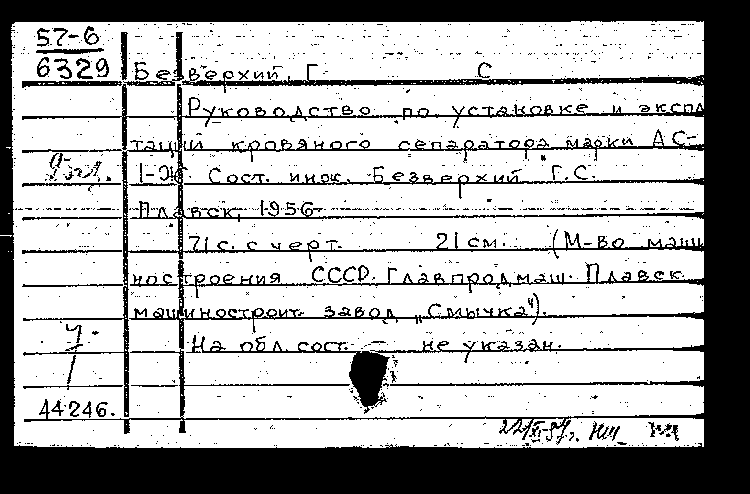 57-6
6329
Безверхий, Г С
Руководство по установке и экспл
таций кровяного сепаратора марки АС-
1-Ж Сост. инж. Безверхий Г.С.
Плавск, 1956.
71 с. с черт. 21 см. (М-во маши
ностроения СССР. Главпродмаш. Плавск
машиностроит. завод „Смычка“).
На обл. сост. — не указан.
44246.